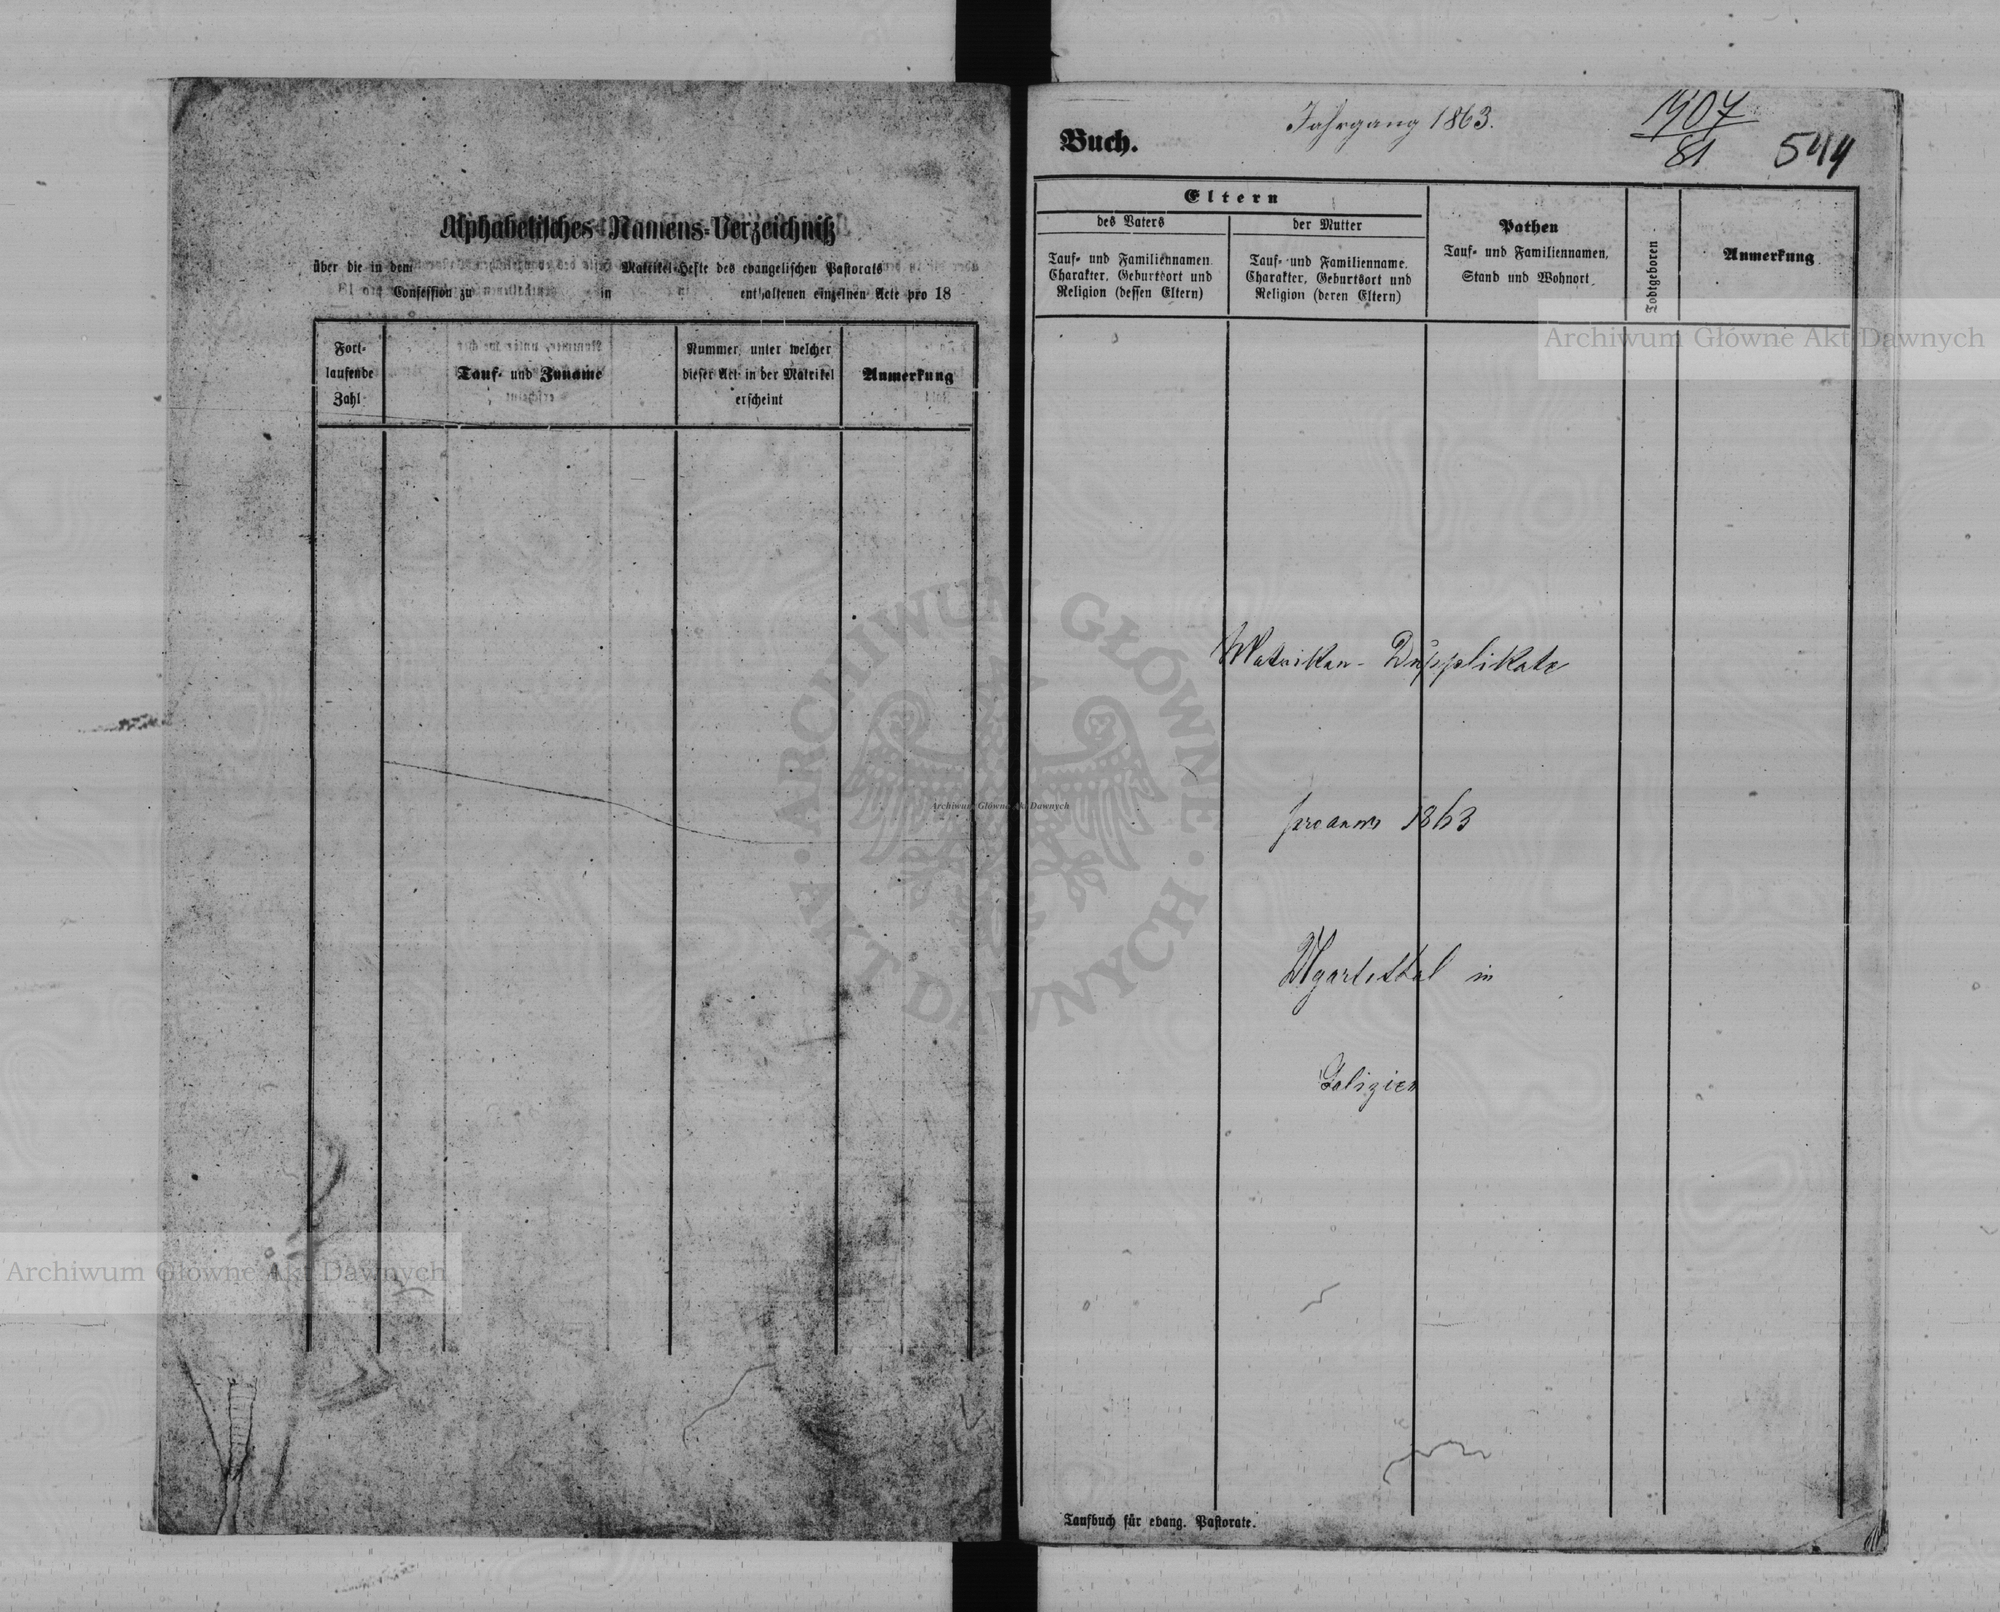 Alphabetisches Namens-Verzeichniß
über die in dem Matrikel-Hefte des evangelischen Pastorats
Confession zu in enthaltenen einzelnen Acte pro 18
Fort-
laufende
Zahl
Tauf- und Zuname
Nummer, unter welcher
dieser Act in der Matrikel
erscheint
Anmerkung
Jahrgang 1863.
1907
81
544
Buch.
Eltern
des Vaters
Tauf- und Familiennamen.
Charakter, Geburtsort und
Religion (dessen Eltern)
der Mutter
Tauf- und Familienname.
Charakter, Geburtsort und
Religion (deren Eltern)
Pathen
Tauf- und Familiennamen,
Stand und Wohnort.
Todtgeboren
Anmerkung
Matriken-Dupplikate
pro anno 1863
Ugartsthal in
Galizien
Taufbuch für evang. Pastorate.
Archiwum Główne Akt Dawnych
ARCHIWUM GŁÓWNE
AKT DAWNYCH
Archiwum Główne Akt Dawnych
Archiwum Główne Akt Dawnych